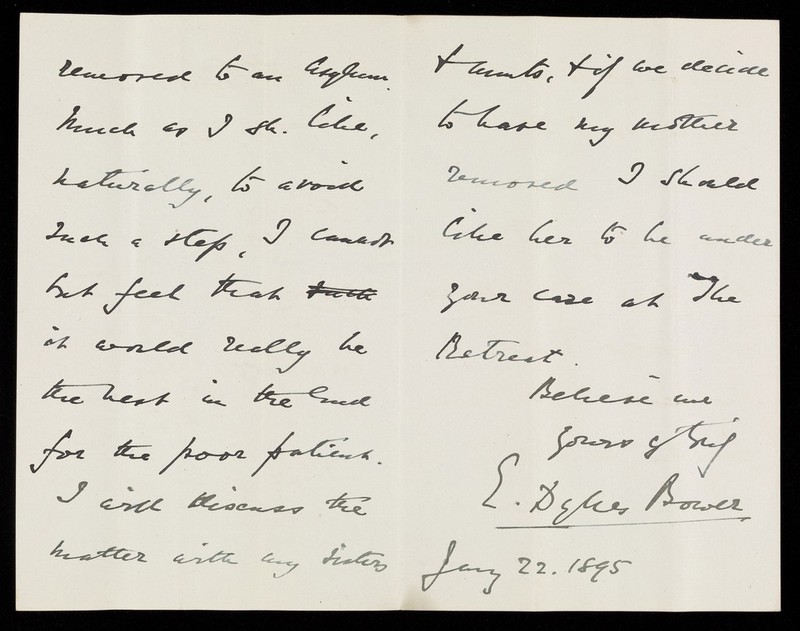 removed to an Asylum.
Much as I sh. like,
naturally, to avoid
such a step, I cannot
but feel that such
it would really be
the best in the end
for the poor patient.
I will discuss the
matter with my sisters
& aunts, & if we decide
to have my mother
removed I should
like her to be under
your care at The
Retreat.
Believe me
yours
E. Dykes Bower
Jany 22. 1895